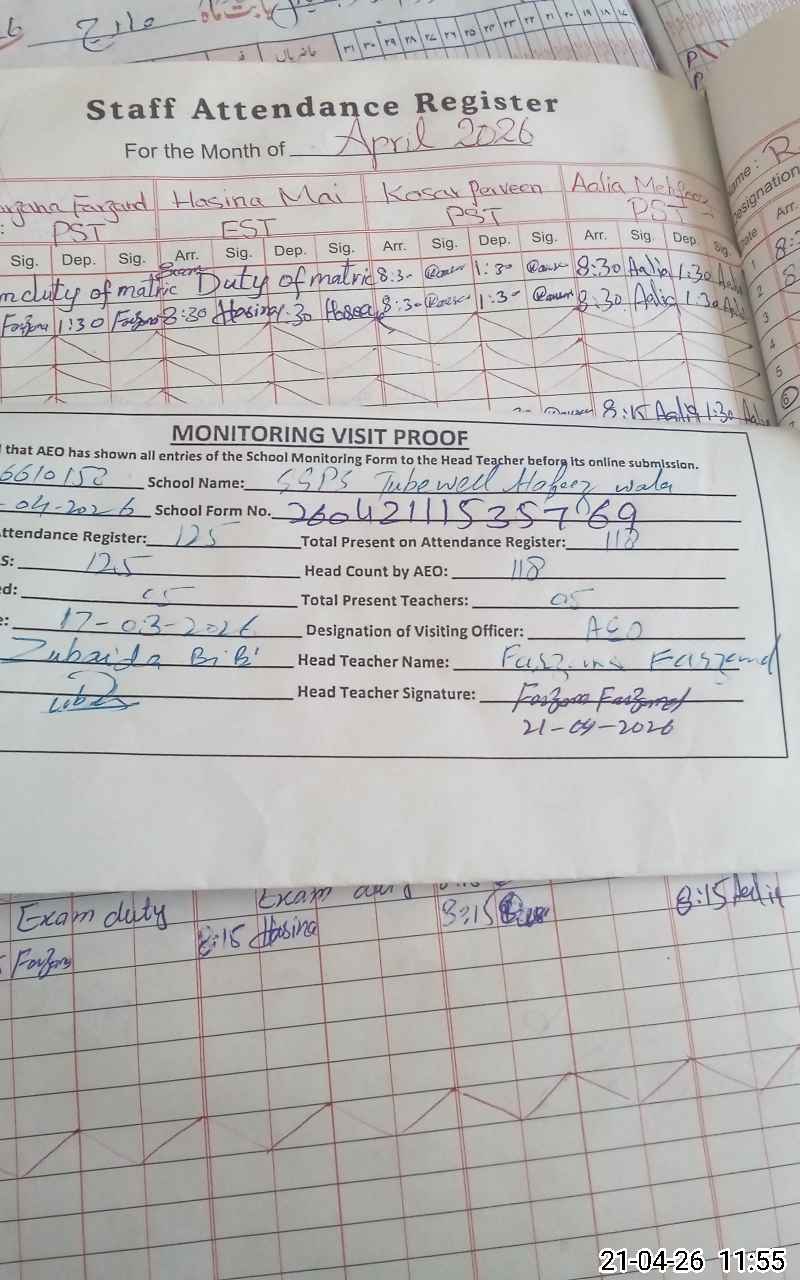 مارچ
حاضریاں
٣١ ٣٠ ٢٩ ٢٨ ٢٧ ٢٦ ٢٥ ٢٤ ٢٣ ٢٢ ٢١ ٢٠ ١٩ ١٨ ١٧ ١٦
Staff Attendance Register
For the Month of April 2026
Farzand Hasina Mai Kosar Perveen Aalia Mehfooz
PST EST PST PST
Sig. Dep. Sig. Arr. Sig. Dep. Sig. Arr. Sig. Dep. Sig. Arr. Sig. Dep. Sig.
duty of matric Duty of matric 8:30 1:30 8:30 Aalia 1:30
Farzana 1:30 Farzana 8:30 Hasina 1:30 8:30 1:30 8:30 Aalia 1:30
8:15 Aalia 1:30 Aalia
MONITORING VISIT PROOF
that AEO has shown all entries of the School Monitoring Form to the Head Teacher before its online submission.
6610152 School Name: GGPS Tubewell Hafeez wala
-04-2026 School Form No. 26042111535769
ttendance Register: 125 Total Present on Attendance Register: 118
S: 125 Head Count by AEO: 118
d: 05 Total Present Teachers: 05
e: 17-03-2026 Designation of Visiting Officer: AEO
Zubaida BiBi Head Teacher Name: Farzana Farzand
Head Teacher Signature: Farzana Farzand
21-04-2026
Exam duty Exam duty 8:15 8:15 Aalia
Farzana 8:15 Hasina
21-04-26 11:55